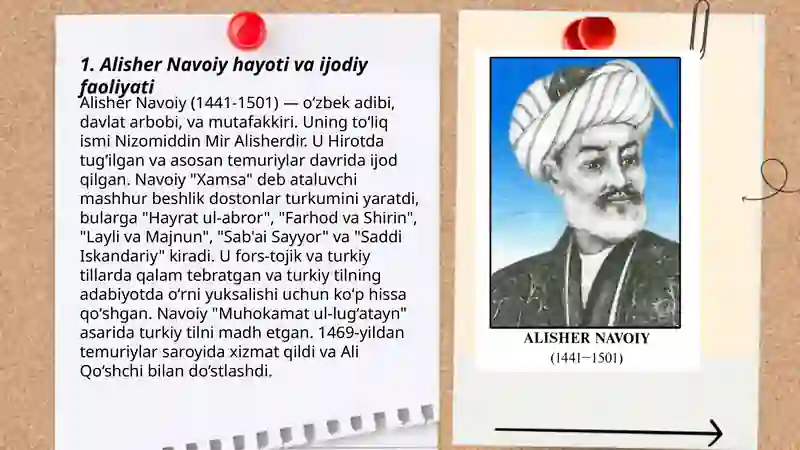 1. Alisher Navoiy hayoti va ijodiy
faoliyati
Alisher Navoiy (1441-1501) — oʻzbek adibi,
davlat arbobi, va mutafakkiri. Uning toʻliq
ismi Nizomiddin Mir Alisherdir. U Hirotda
tugʻilgan va asosan temuriylar davrida ijod
qilgan. Navoiy "Xamsa" deb ataluvchi
mashhur beshlik dostonlar turkumini yaratdi,
bularga "Hayrat ul-abror", "Farhod va Shirin",
"Layli va Majnun", "Sab'ai Sayyor" va "Saddi
Iskandariy" kiradi. U fors-tojik va turkiy
tillarda qalam tebratgan va turkiy tilning
adabiyotda oʻrni yuksalishi uchun koʻp hissa
qoʻshgan. Navoiy "Muhokamat ul-lugʻatayn"
asarida turkiy tilni madh etgan. 1469-yildan
temuriylar saroyida xizmat qildi va Ali
Qoʻshchi bilan doʻstlashdi.
ALISHER NAVOIY
(1441–1501)